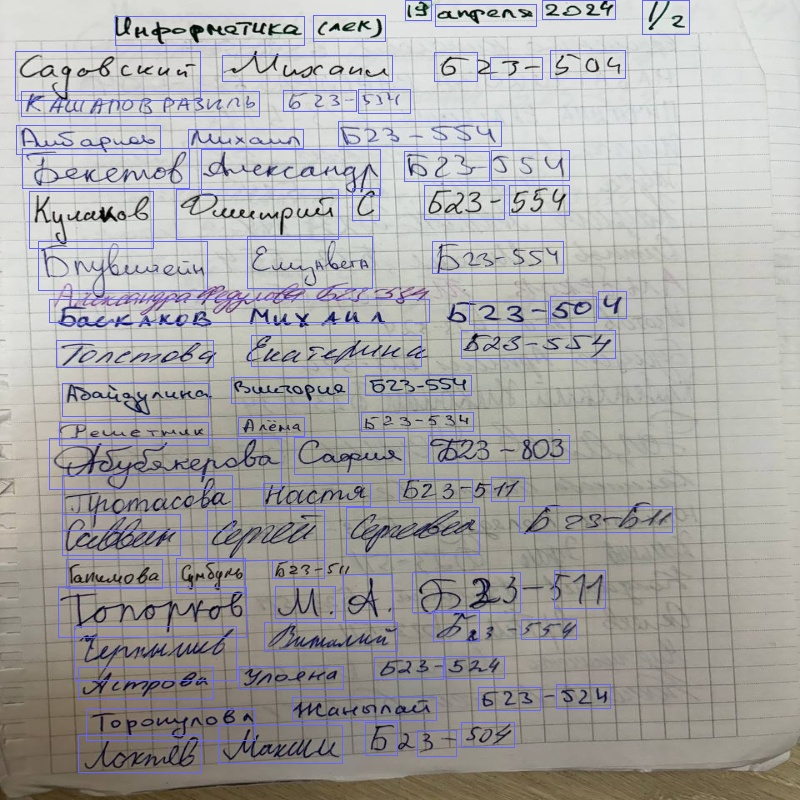 Информатика (лек) 19 апреля 2024 1/2
Садовский Михаил Б23-504
КАШАПОВ РАЗИЛЬ Б23-534
Амбарцев Михаил Б23-554
Бекетов Александр Б23-554
Кулаков Дмитрий С Б23-554
Елизавета Б23-554
Александра Федулова Б23-534
Баскаков Михаил Б23-504
Толстова Екатерина Б23-554
Абайдулина Виктория Б23-554
Решетник Алёна Б23-534
Абубякерова Сафия Б23-803
Протасова Настя Б23-511
Саввин Сергей Сергеевич Б23-Б11
Галимова Сумбуль Б23-511
Топорков М. А. Б23-511
Чернышев Виталий Б23-554
Астрова Ульяна Б23-524
Торокулова Жанылай Б23-524
Локтев Максим Б23-504